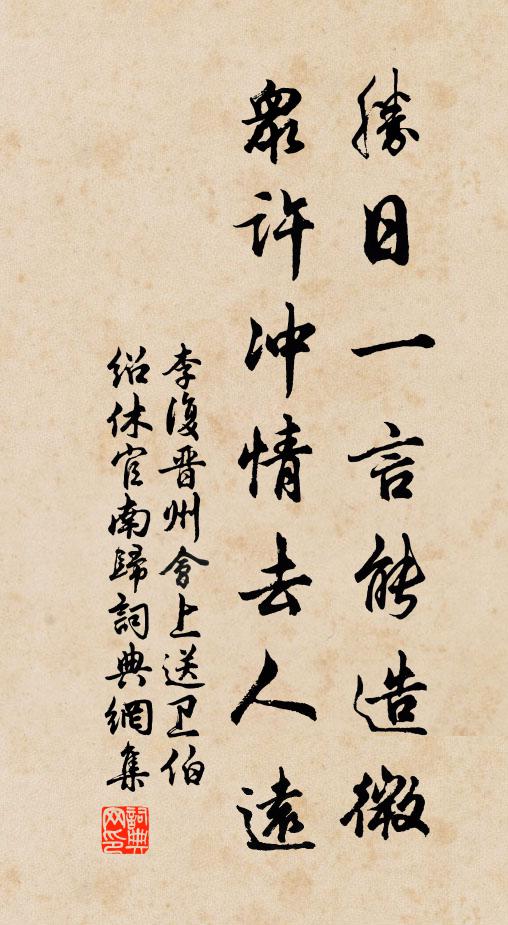 勝日一言能造微
眾許沖情去人遠
李復晋州會上送卫伯
紹休官南歸詞典網集
詞典网印